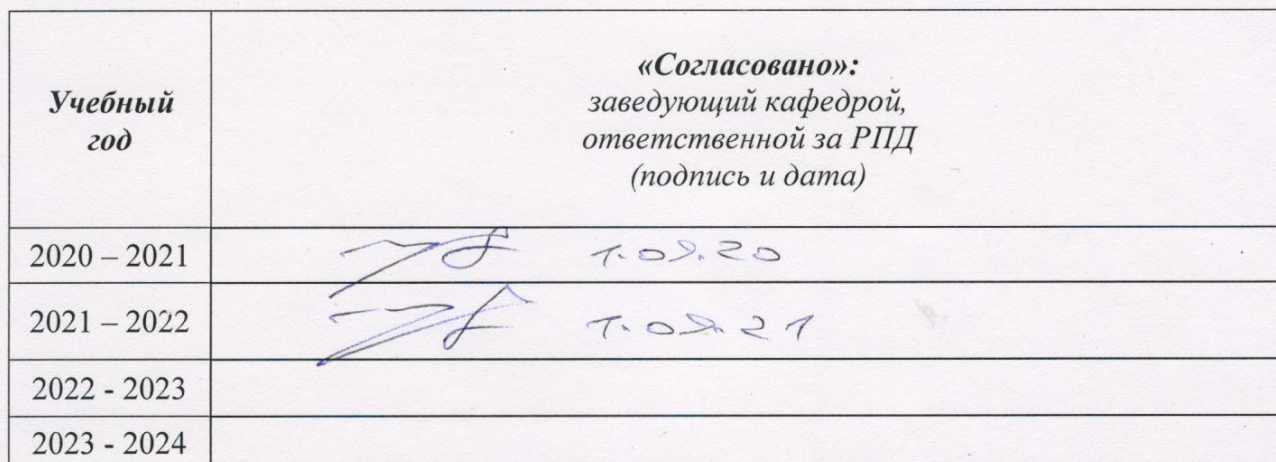 Учебный
год
«Согласовано»:
заведующий кафедрой,
ответственной за РПД
(подпись и дата)
2020 – 2021 1.09.20
2021 – 2022 1.09.21
2022 - 2023
2023 - 2024